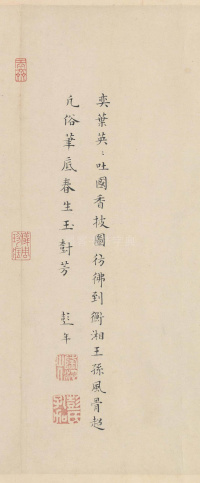 奕葉英〻吐國香披圖彷彿到衡湘王孫風骨超
凡俗筆底春生玉對芳 彭年